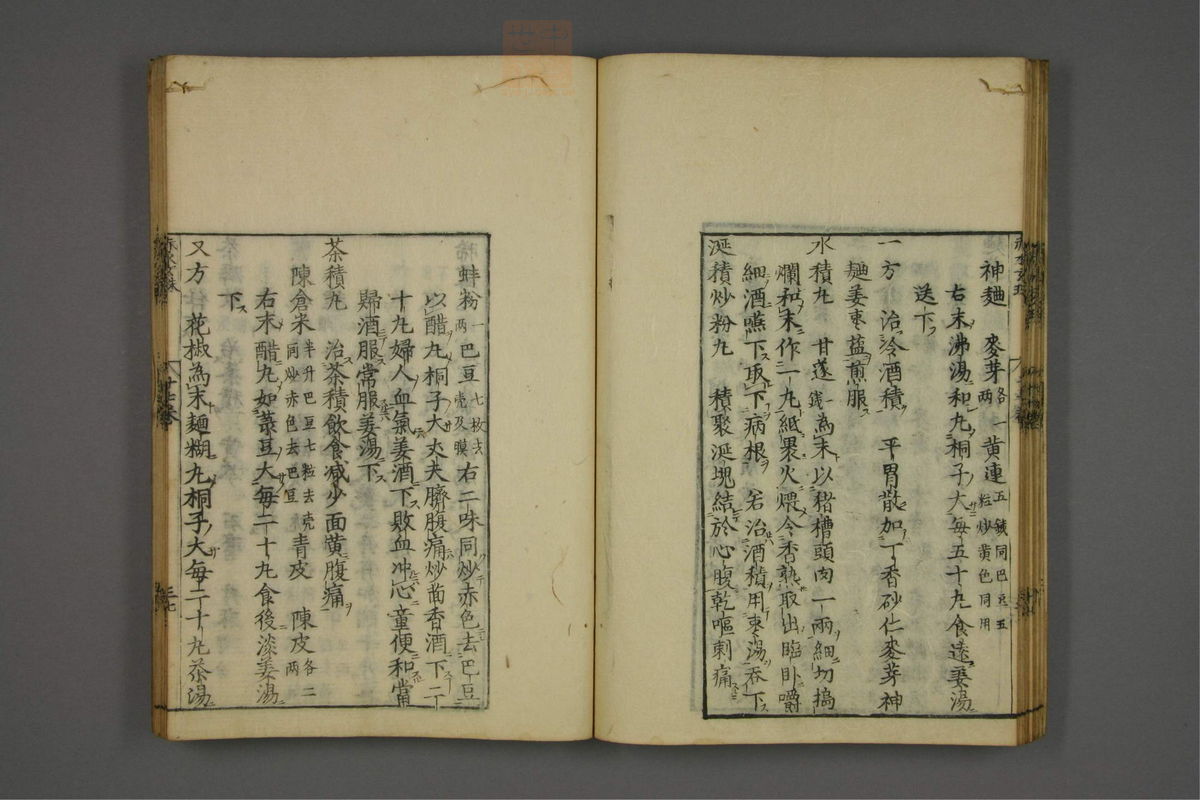 神麯　麥芽各一兩　黃連五錢同巴豆五粒炒黃色同用
右末沸湯和丸桐子大每五十丸食遠姜湯
送下
一方　治冷酒積　平胃散加丁香砂仁麥芽神
麯姜棗盐煎服
水積丸　甘遂一錢為末以猪槽頭肉一兩細切搗
爛和末作一丸紙裹火煨令香熟取出臨卧嚼
細酒嚥下取下病根　若治酒積用棗湯吞下
涎積炒粉丸　積聚涎塊結於心腹乾嘔刺痛
蚌粉一兩　巴豆七枚去壳及膜　右二味同炒赤色去巴豆
以醋丸桐子大丈夫臍腹痛炒茴香酒下二
十丸婦人血氣姜酒下敗血冲心童便和當
歸酒服常服姜湯下
茶積丸　治茶積飲食减少面黃腹痛
陳倉米半升巴豆七粒去壳同炒赤色去巴豆　青皮　陳皮各二兩
右末醋丸如菉豆大每二十丸食後淡姜湯
下
又方　花椒為末麵糊丸桐子大每二十丸茶湯